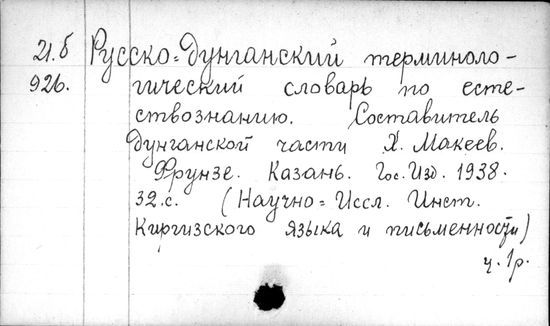 21.б Русско=Дунганский терминоло-
926. гический словарь по есте-
ствознанию. Составитель
Дунганской части Х. Макеев.
Фрунзе. Казань. Гос. Изд. 1938.
32.с. (Научно=Иссл. Инст.
Киргизского языка и письменности)
ц. 1р.